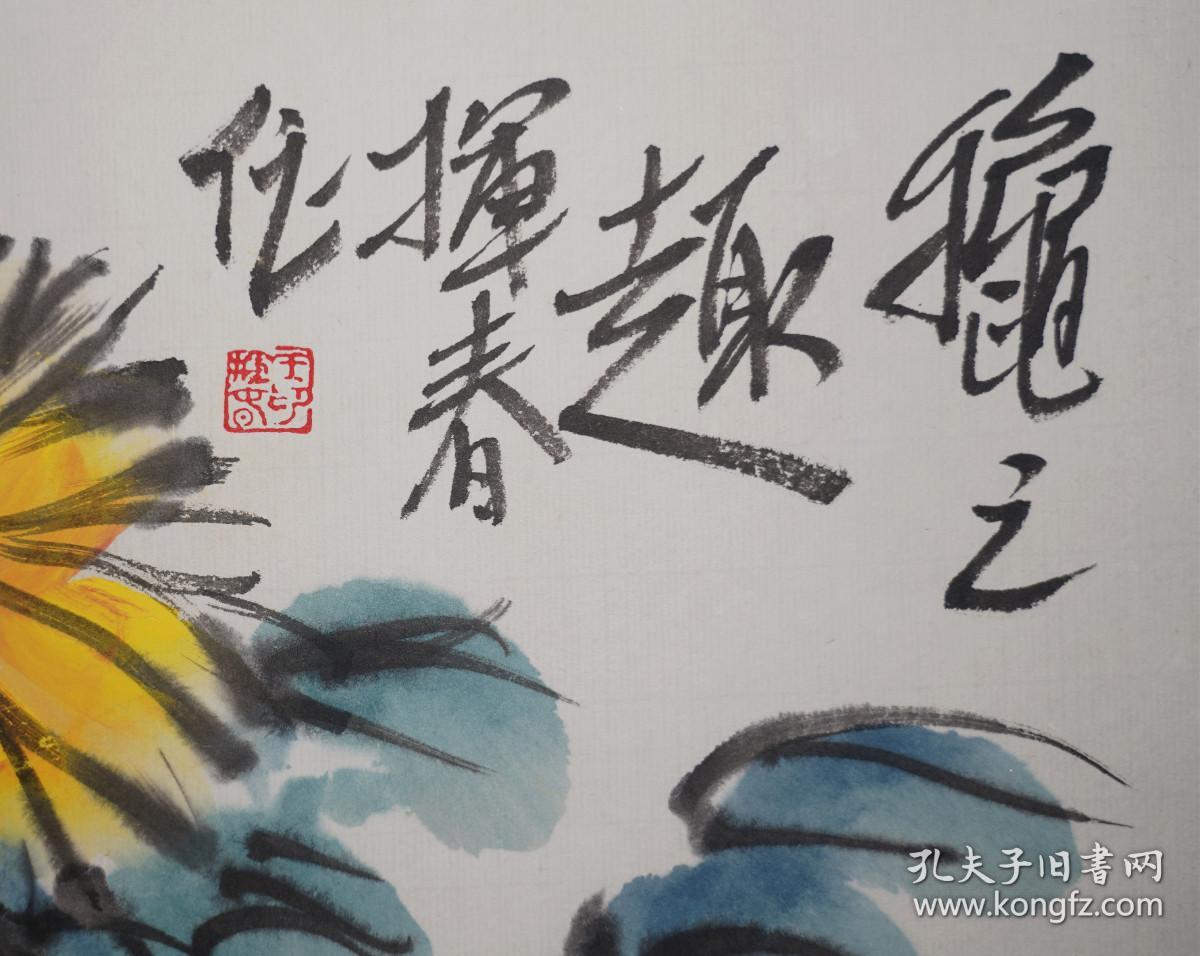 龝之
趣
揮春
作
孔夫子旧書网
www.kongfz.com